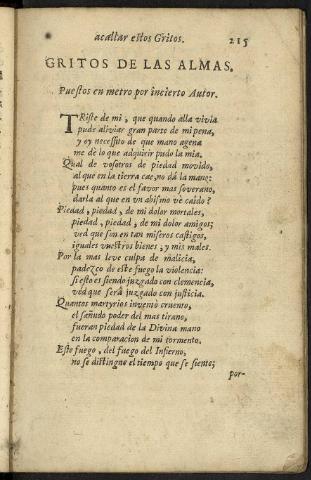 acallar estos Gritos. 215
GRITOS DE LAS ALMAS.
Puestos en metro por incierto Autor.
TRiste de mi, que quando alla vivia
pude aliviar gran parte de mi pena,
y oy necessito de que mano agena
me dè lo que adquirir pudo la mia.
Qual de vosotros de piedad movido,
al que en la tierra cae, no dà la mano?
pues quanto es el favor mas soverano,
darla al que en un abismo ve caido?
Piedad, piedad, de mi dolor mortales,
piedad, piedad, de mi dolor amigos;
ved que son en tan miseros castigos,
iguales vuestros bienes, y mis males.
Por la mas leve culpa de malicia,
padezco de este fuego la violencia:
si esto es siendo juzgado con clemencia,
ved que serà juzgado con justicia.
Quantos martyrios inventò cruento,
el sañudo poder del mas tirano,
fueran piedad de la Divina mano
en la comparacion de mi tormento.
Este fuego, del fuego del Infierno,
no se distingue el tiempo que se siente;
por-